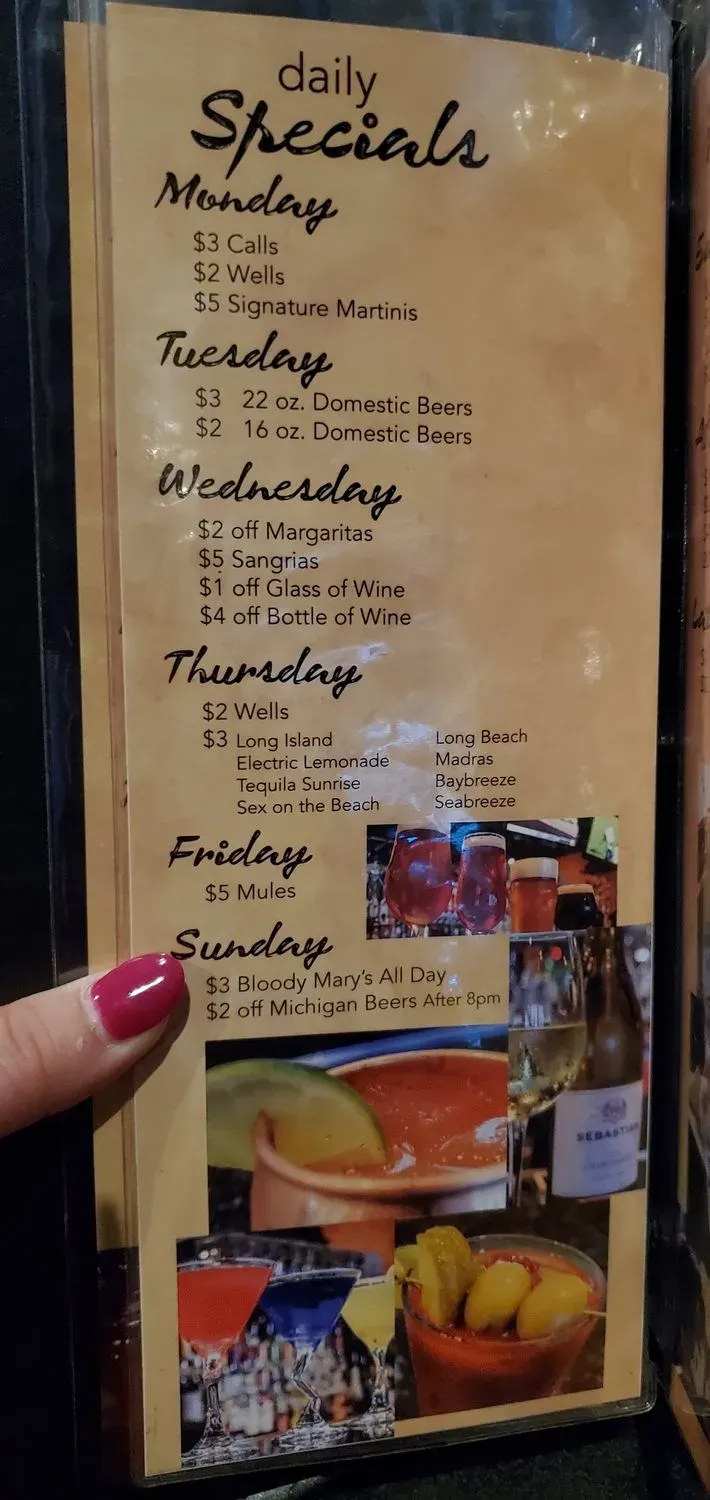 daily
Specials
Monday
$3 Calls
$2 Wells
$5 Signature Martinis
Tuesday
$3 22 oz. Domestic Beers
$2 16 oz. Domestic Beers
Wednesday
$2 off Margaritas
$5 Sangrias
$1 off Glass of Wine
$4 off Bottle of Wine
Thursday
$2 Wells
$3 Long Island
Electric Lemonade
Tequila Sunrise
Sex on the Beach
Long Beach
Madras
Baybreeze
Seabreeze
Friday
$5 Mules
Sunday
$3 Bloody Mary's All Day
$2 off Michigan Beers After 8pm